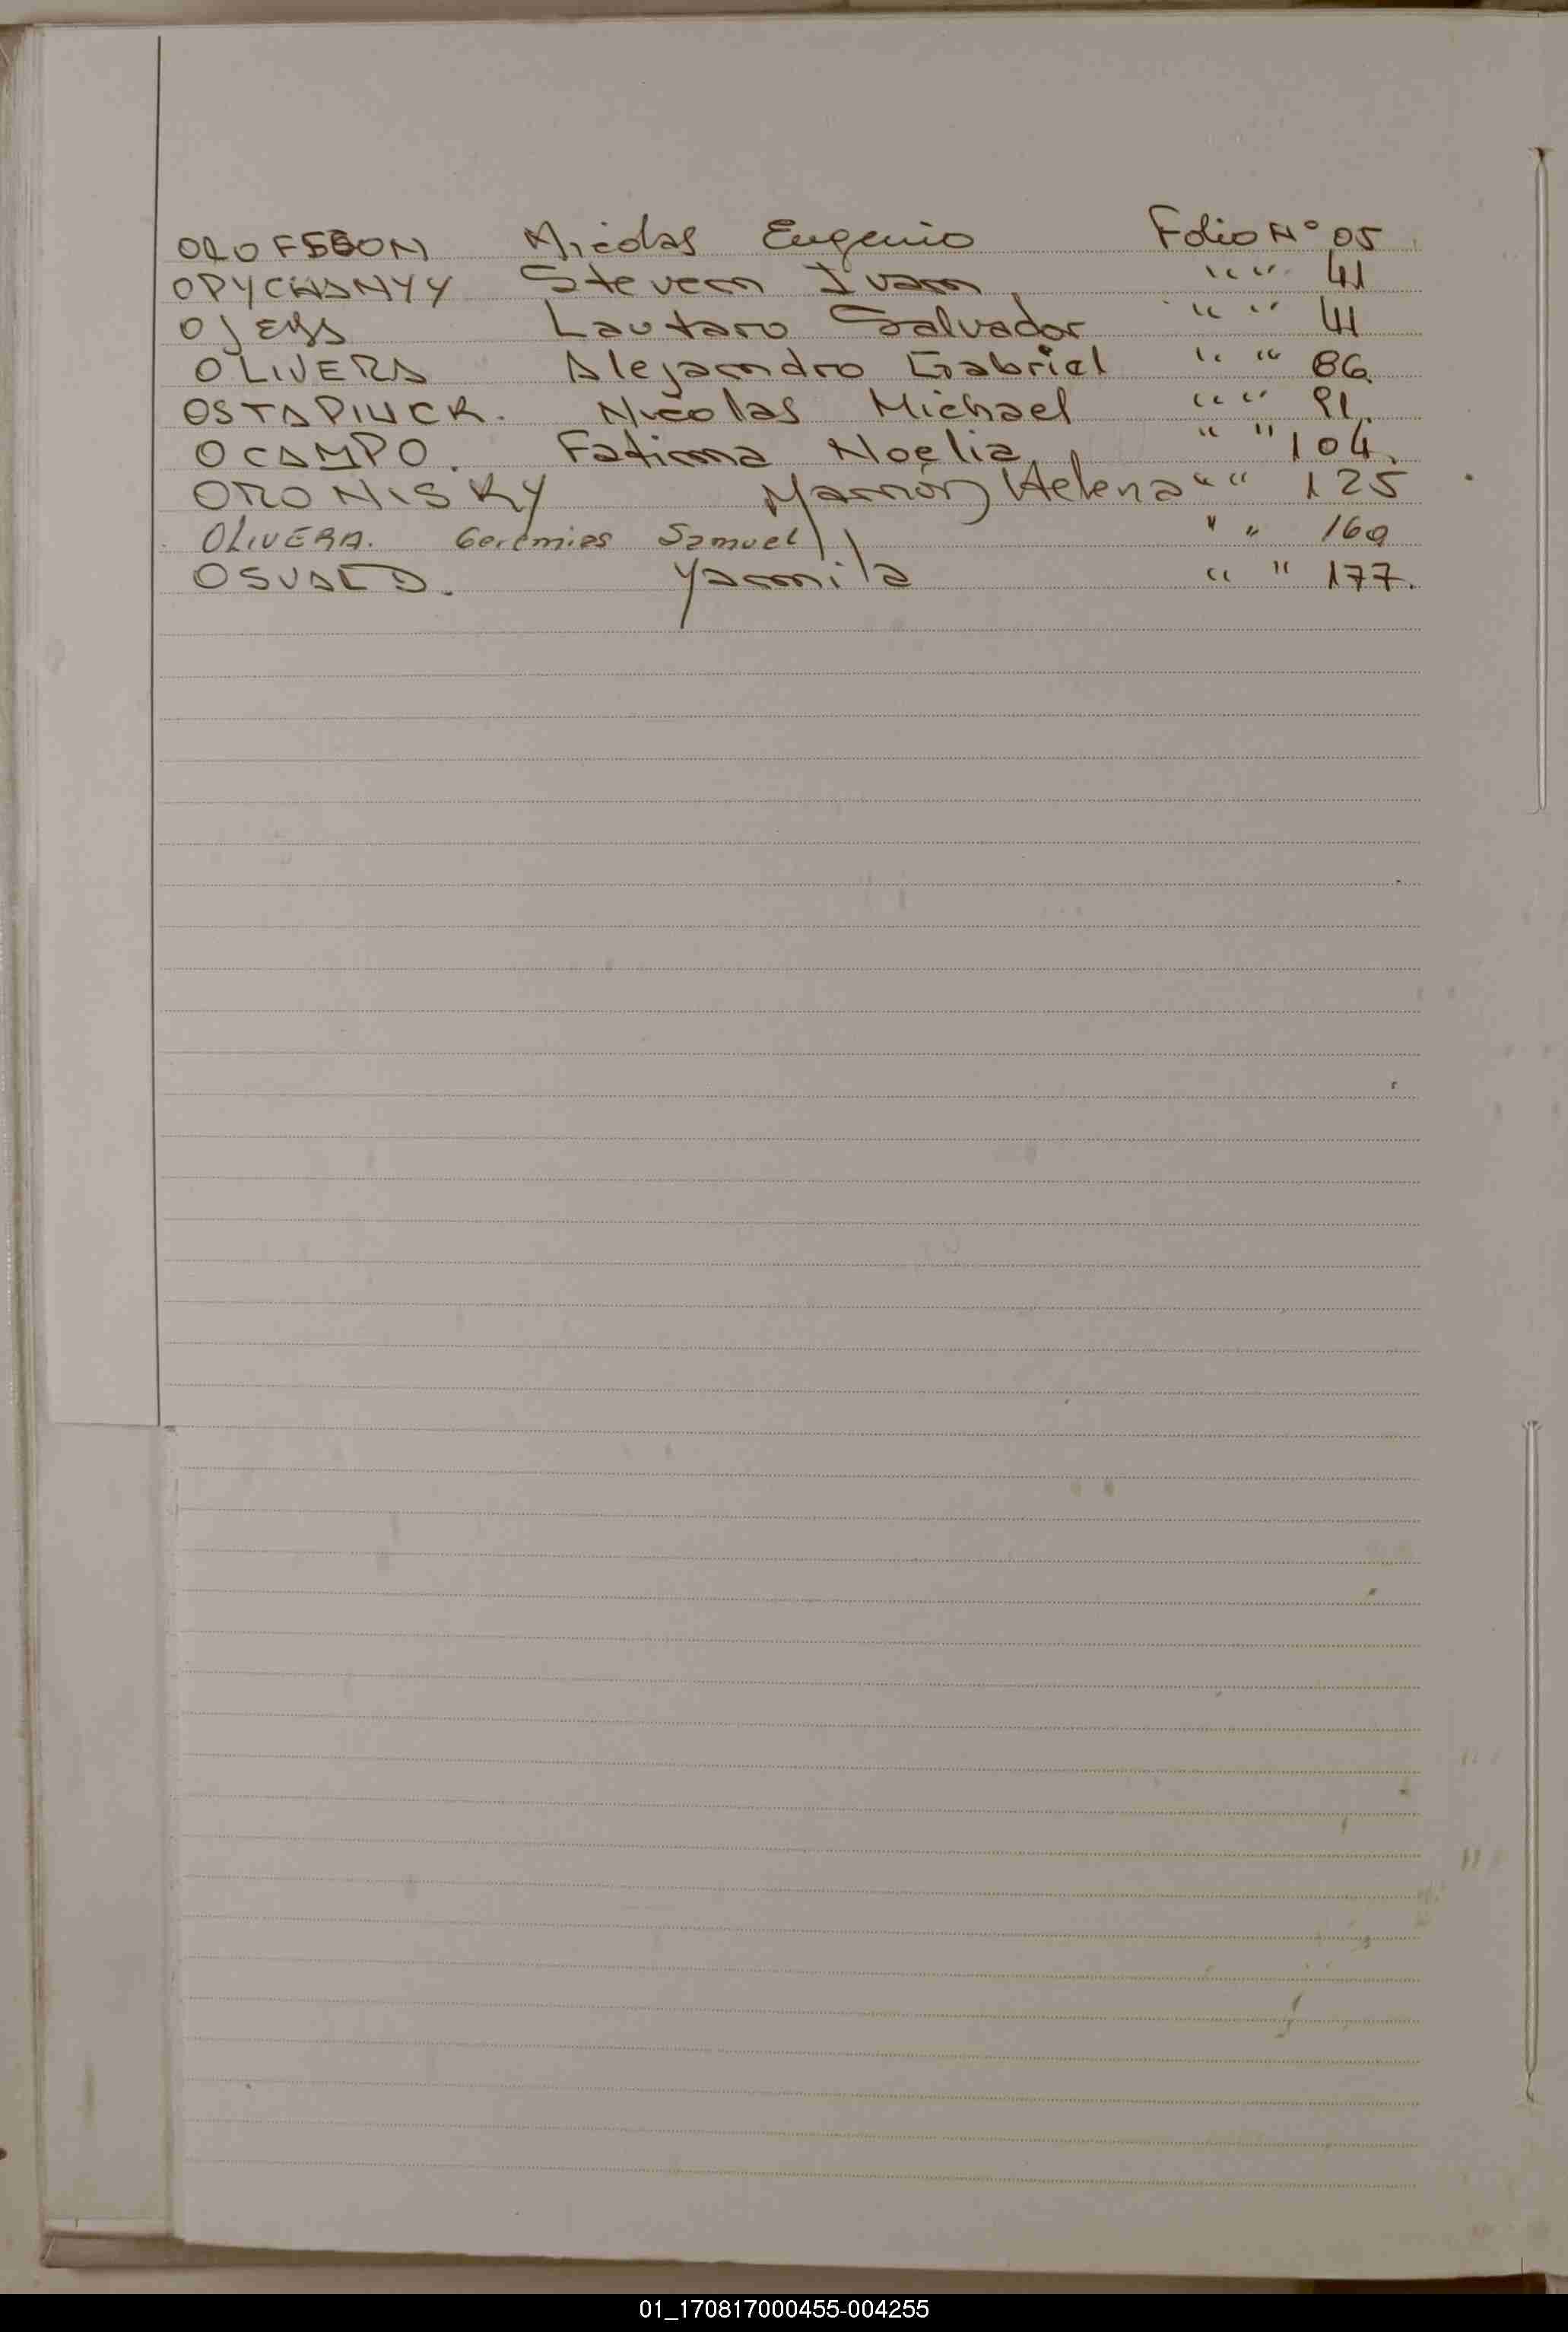 OLOFSSON Nicolas Eugenio Folio N° 05
OPYCHANYY Stevem Ivan " " 41
OJEDA Lautaro Salvador " " 41
OLIVERA Alejandro Gabriel " " 86
OSTAPIUCK. Nicolas Michael " " 91.
OCAMPO. Fatima Noelia " " 104.
ORONISKY Helena " " 125
OLIVERA. Geremias Samuel " " 160
OSUALD. Yamila " " 177.
01_170817000455-004255